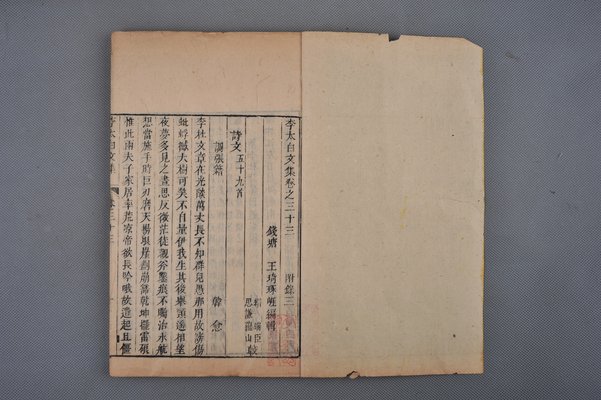 李太白文集卷之三十三　附錄三
錢塘　王琦琢崖編輯
思謙蘊山較
詩文五十九首
調張籍　韓愈
李杜文章在光燄萬丈長不知群兒愚那用故謗傷
蚍蜉撼大樹可笑不自量伊我生其後舉頸遙相望
夜夢多見之晝思反微茫徒觀斧鑿痕不矚治水航
想當施手時巨刃磨天揚垠崖劃崩豁乾坤擺雷硠
惟此兩夫子家居率荒涼帝欲長吟哦故遣起且僵
李太白文集　卷三十三